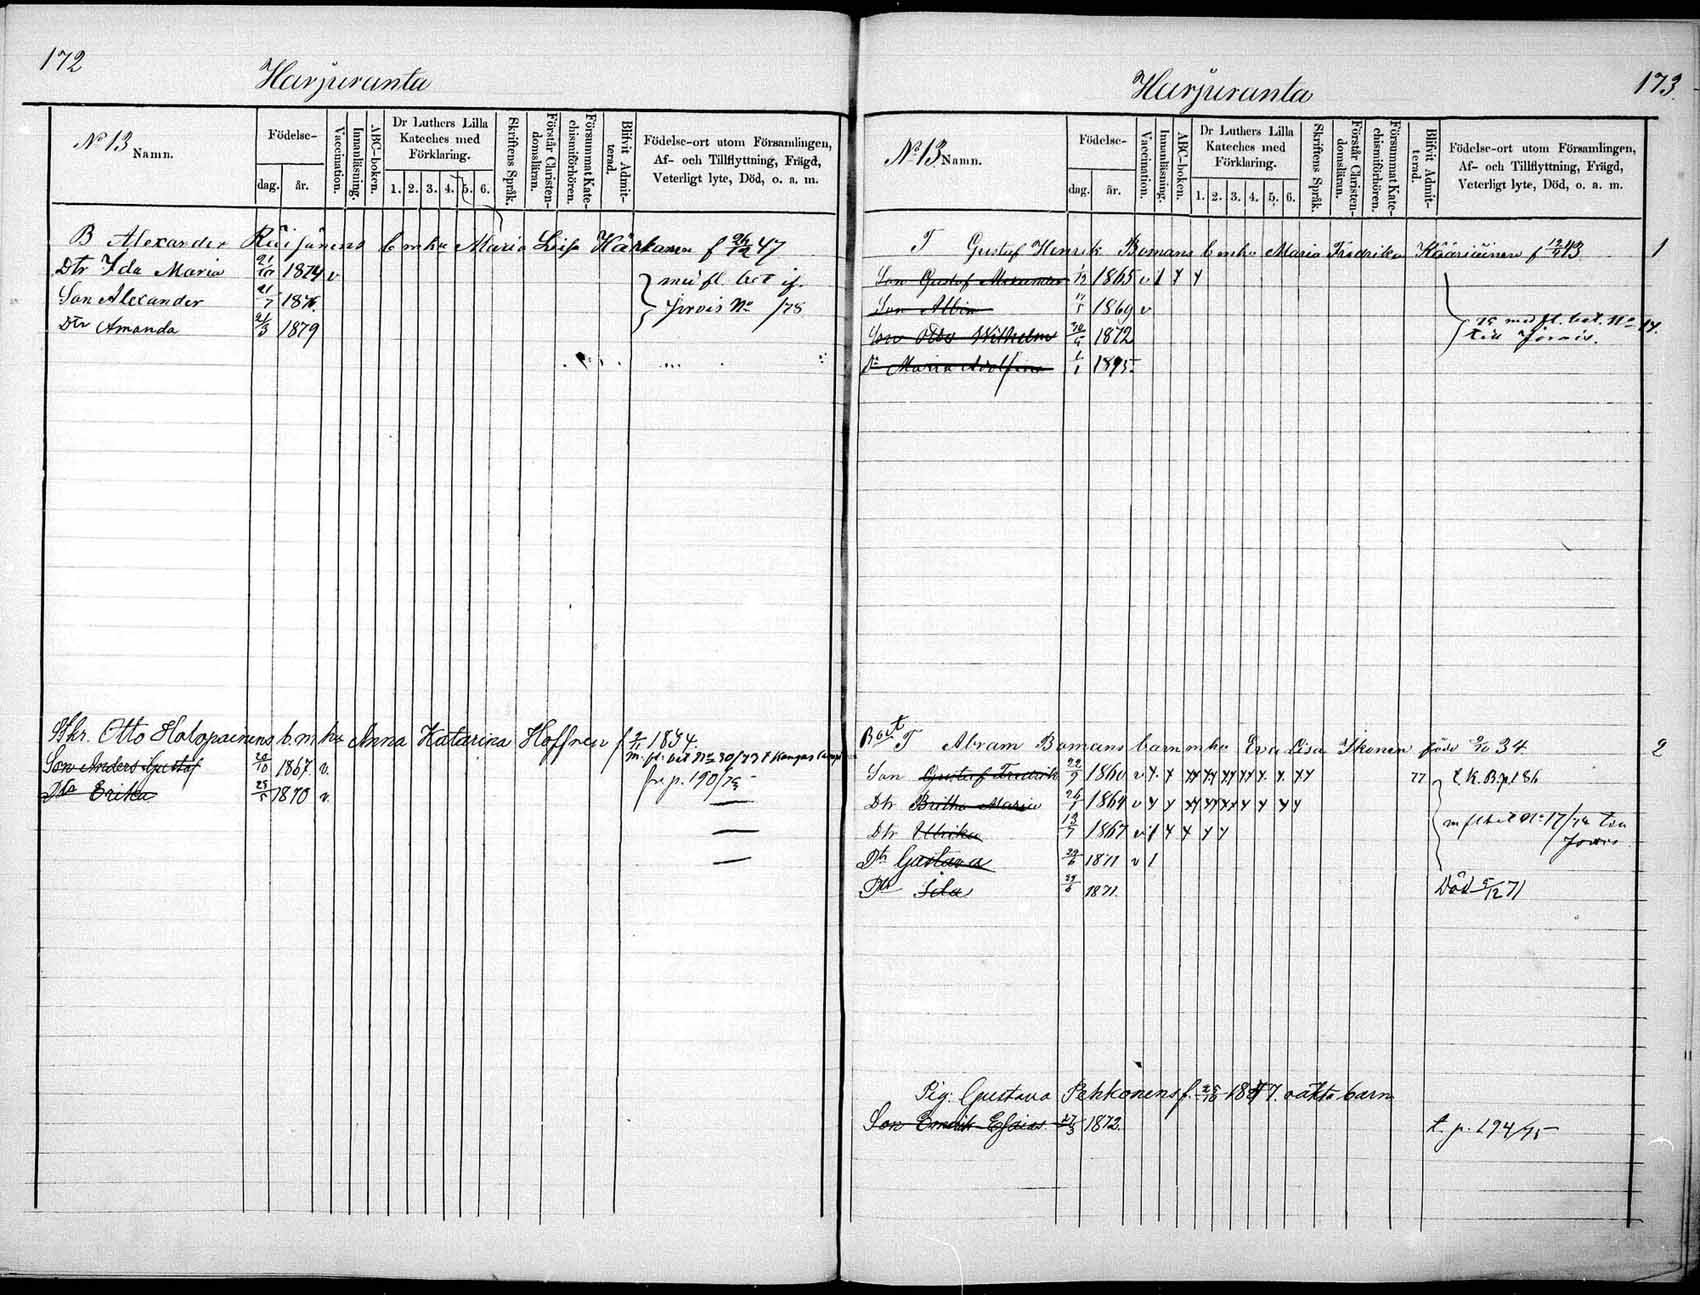 172
Harjuranta
No 13
Namn.
Födelse-
dag.
år.
Vaccination.
Innanläsning.
ABC-boken.
Dr Luthers Lilla
Kateches med
Förklaring.
1. 2. 3. 4. 5. 6.
Skriftens Språk.
Förstår Christen-
domsläran.
Försummat Kate-
chismiförhören.
Blifvit Admit-
terad.
Födelse-ort utom Församlingen,
Af- och Tillflyttning, Frägd,
Veterligt lyte, Död, o. a. m.
B Alexander b m hu Maria Lovisa f 26/12 47
Dtr Ida Maria 21/10 1874 v
Son Alexander 21/7 1876
Dtr Amanda 21/3 1879
med fl. bet
Jorois No /78
Otto Holopainens b. m. hu Anna Katarina Hoffren f 2/11 1834.
Son Anders Gustaf 20/10 1867 v.
Dtr Erika 23/5 1870 v.
m. fl. bet No 30/73 t Kangaslampi
fr. p. 190/75
173
Harjuranta
No 13 Namn.
Födelse-
dag.
år.
Vaccination.
Innanläsning.
ABC-boken.
Dr Luthers Lilla
Kateches med
Förklaring.
1. 2. 3. 4. 5. 6.
Skriftens Språk.
Förstår Christen-
domsläran.
Försummat Kate-
chismiförhören.
Blifvit Admit-
terad.
Födelse-ort utom Församlingen,
Af- och Tillflyttning, Frägd,
Veterligt lyte, Död, o. a. m.
T Gustaf Henrik Bomans b m hu Maria Fredrika Kääriäinen f 43 1
Son Gustaf Alexander 1/12 1865 v
Son Albin 17/5 1869 v
Son Otto Wilhelm 30/4 1872
Dr Maria Adolfina 1/1 1875
75 med fl. bet. No 14.
till Jorois.
T Abram Bomans barn m hu Eva Lisa Ikonen född 34 2
Son Gustaf Fredrik 22/9 1860 v 77 t. K. B. p. 186
Dtr Britha Maria 26/1 1864 v
Dtr Ulrika 13/7 1867 v
Dtr Gustava 29/6 1871 v
Dtr Sila 29/6 1871. Död 5/12 71
m fl bet No 17/74 till
Jorois
Pig. Gustava Pehkonens f. 25/10 1847. oäkta barn
Son Henrik Esaias 27/3 1872. t. p. 194/75